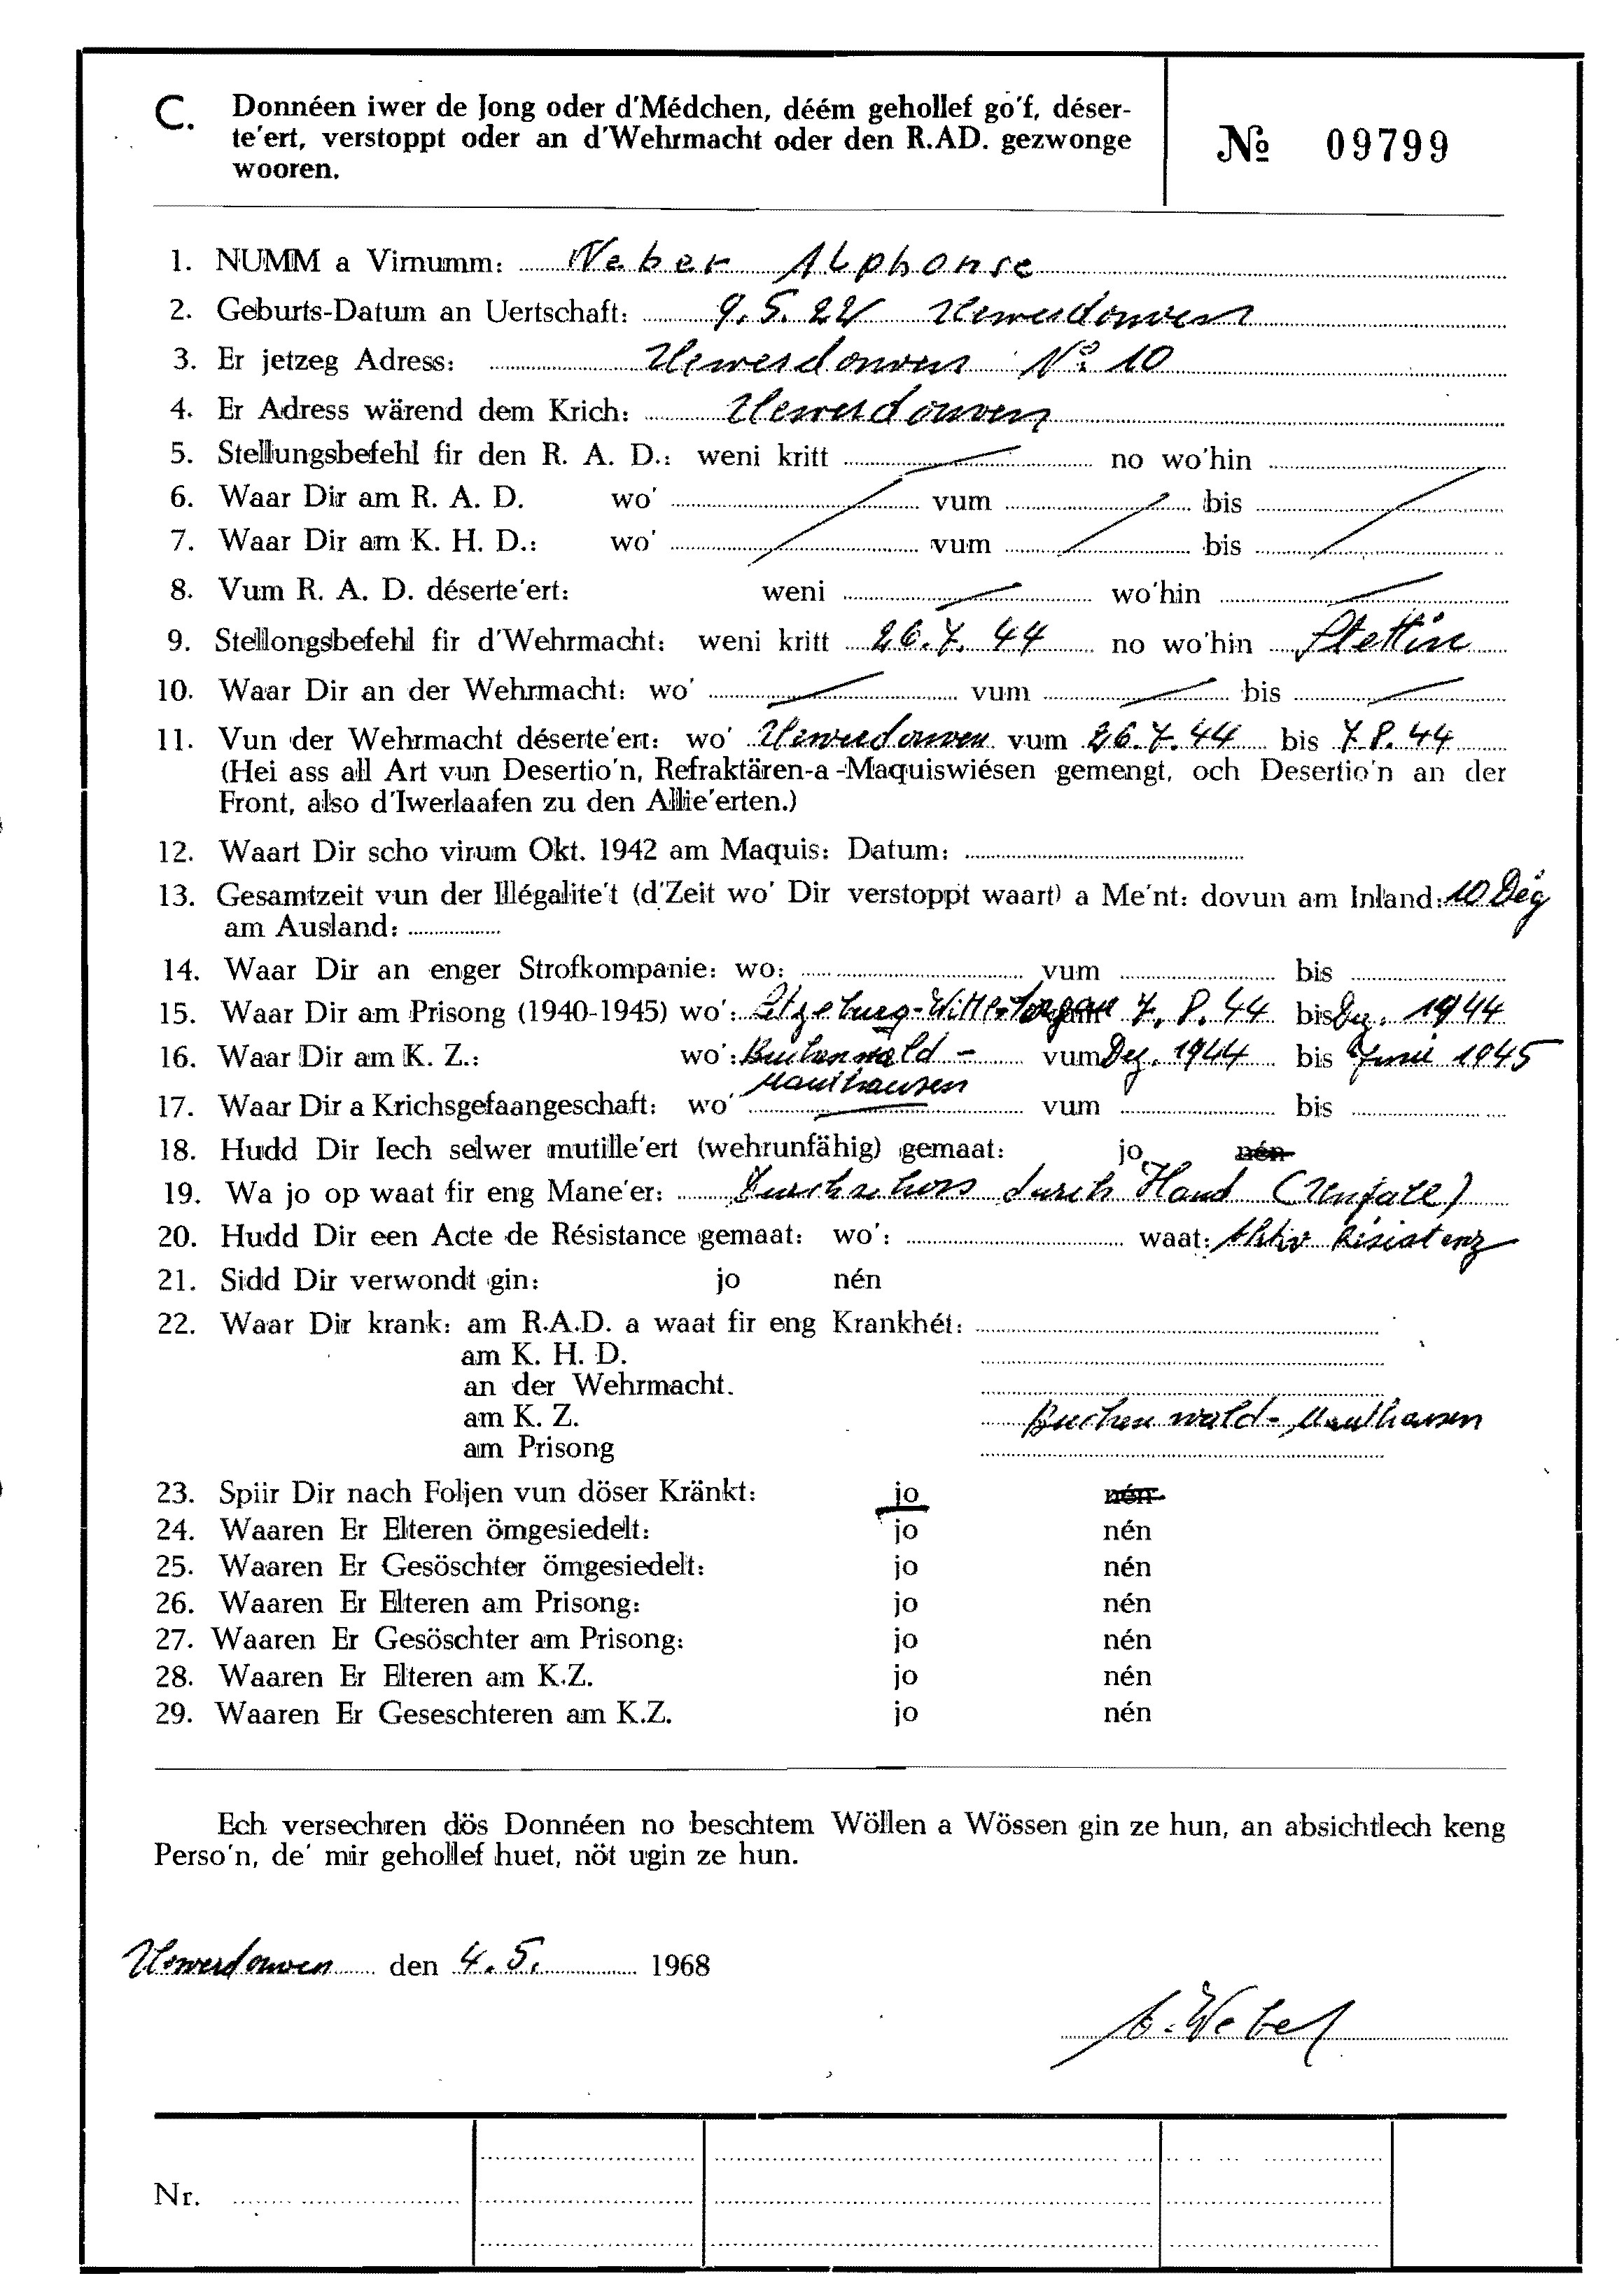 C. Donnéen iwer de Jong oder d'Médchen, déém gehollef go'f, déser-
te'ert, verstoppt oder an d'Wehrmacht oder den R.AD. gezwonge
wooren.
№ 09799
1. NUMM a Virnumm: Weber Alphonse
2. Geburts-Datum an Uertschaft: 9.5.22 Uewerdonven
3. Er jetzeg Adress: Uewerdonven No 10
4. Er Adress wärend dem Krich: Uewerdonven
5. Stellungsbefehl fir den R. A. D.: weni kritt no wo'hin
6. Waar Dir am R. A. D. wo' vum bis
7. Waar Dir am K. H. D.: wo' vum bis
8. Vum R. A. D. déserte'ert: weni wo'hin
9. Stellongsbefehl fir d'Wehrmacht: weni kritt 26.7.44 no wo'hin Stettin
10. Waar Dir an der Wehrmacht: wo' vum bis
11. Vun der Wehrmacht déserte'ert: wo' Uewerdonven vum 26.7.44 bis 7.8.44
(Hei ass all Art vun Desertio'n, Refraktären-a-Maquiswiésen gemengt, och Desertio'n an der
Front, also d'Iwerlaafen zu den Allie'erten.)
12. Waart Dir scho virum Okt. 1942 am Maquis: Datum:
13. Gesamtzeit vun der Illégalite't (d'Zeit wo' Dir verstoppt waart) a Me'nt: dovun am Inland: 10 Dég
am Ausland:
14. Waar Dir an enger Strofkompanie: wo: vum bis
15. Waar Dir am Prisong (1940-1945) wo': Torgau 7.8.44 bis Dez. 1944
16. Waar Dir am K. Z.: wo': Buchenwald - vum Dez. 1944 bis Juni 1945
Mauthausen
17. Waar Dir a Krichsgefaangeschaft: wo' vum bis
18. Hudd Dir Iech selwer mutille'ert (wehrunfähig) gemaat: jo nén
19. Wa jo op waat fir eng Mane'er: Durchschoss durch Hand
20. Hudd Dir een Acte de Résistance gemaat: wo': waat: Aktiv Résistenz
21. Sidd Dir verwondt gin: jo nén
22. Waar Dir krank: am R.A.D. a waat fir eng Krankhét:
am K. H. D.
an der Wehrmacht.
am K. Z. Buchenwald - Mauthausen
am Prisong
23. Spiir Dir nach Foljen vun döser Kränkt: jo nén
24. Waaren Er Elteren ömgesiedelt: jo nén
25. Waaren Er Gesöschter ömgesiedelt: jo nén
26. Waaren Er Elteren am Prisong: jo nén
27. Waaren Er Gesöschter am Prisong: jo nén
28. Waaren Er Elteren am K.Z. jo nén
29. Waaren Er Geseschteren am K.Z. jo nén
Ech versechren dös Donnéen no beschtem Wöllen a Wössen gin ze hun, an absichtlech keng
Perso'n, de' mir gehollef huet, nöt ugin ze hun.
Uewerdonven den 4.5. 1968
A. Weber
Nr.